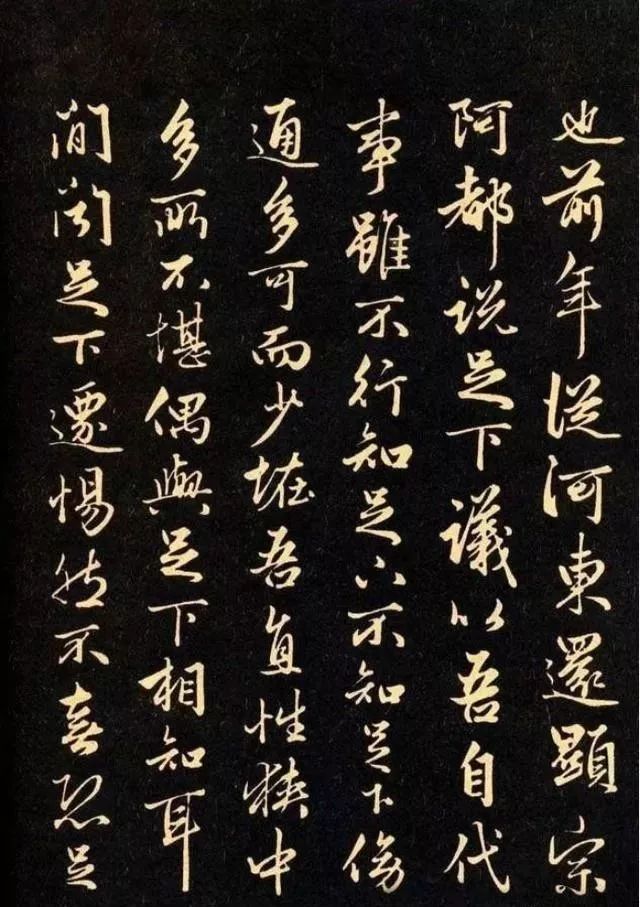 也前年從河東還顯宗
阿都説足下議以吾自代
事雖不行知足下不知足下傍
通多可而少怪吾直性狹中
多所不堪偶與足下相知耳
間聞足下遷惕然不喜恐足